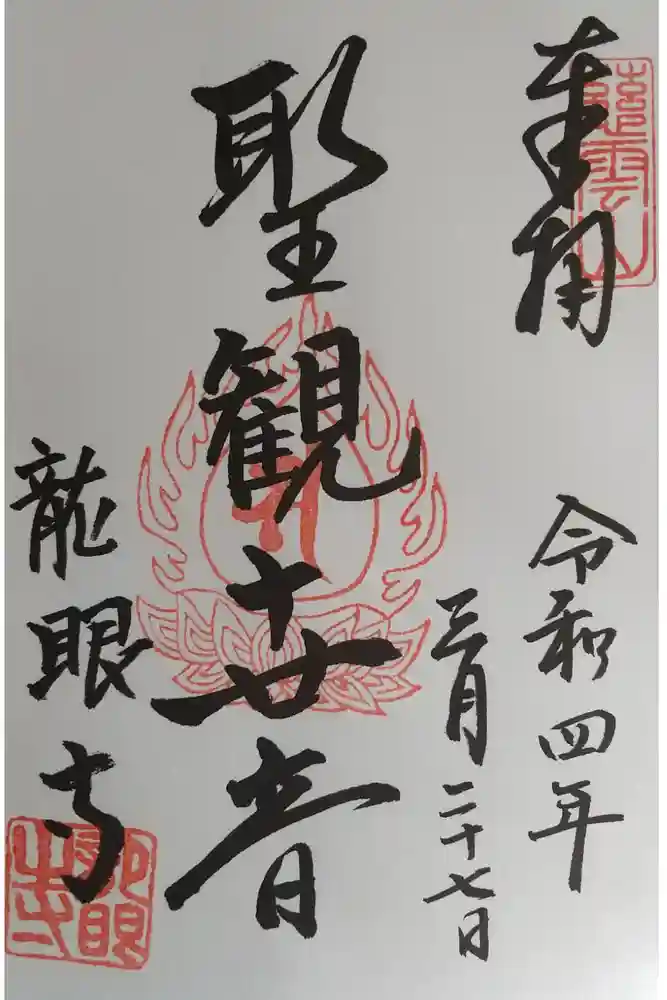 慈雲山
奉拝
令和四年
三月二十七日
聖観世音
龍眼寺